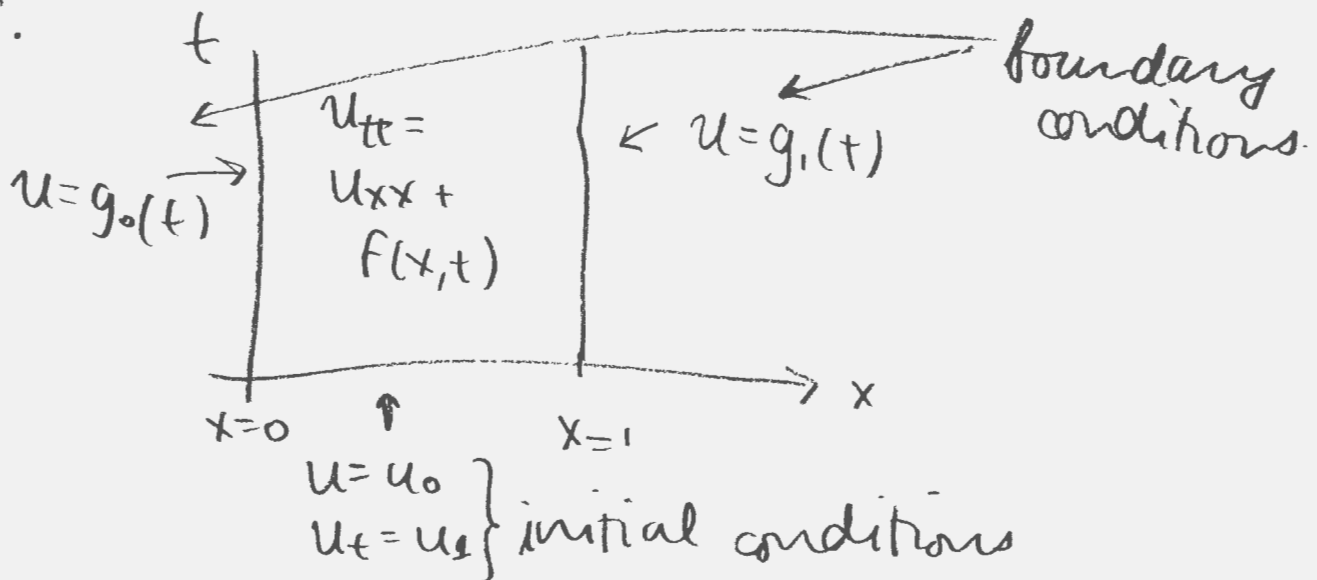 t
boundary
conditions.
u_tt =
u_xx +
f(x,t)
u = g₁(t)
u = g₀(t)
x
x=0
x=1
u = u₀
u_t = u₁
initial conditions